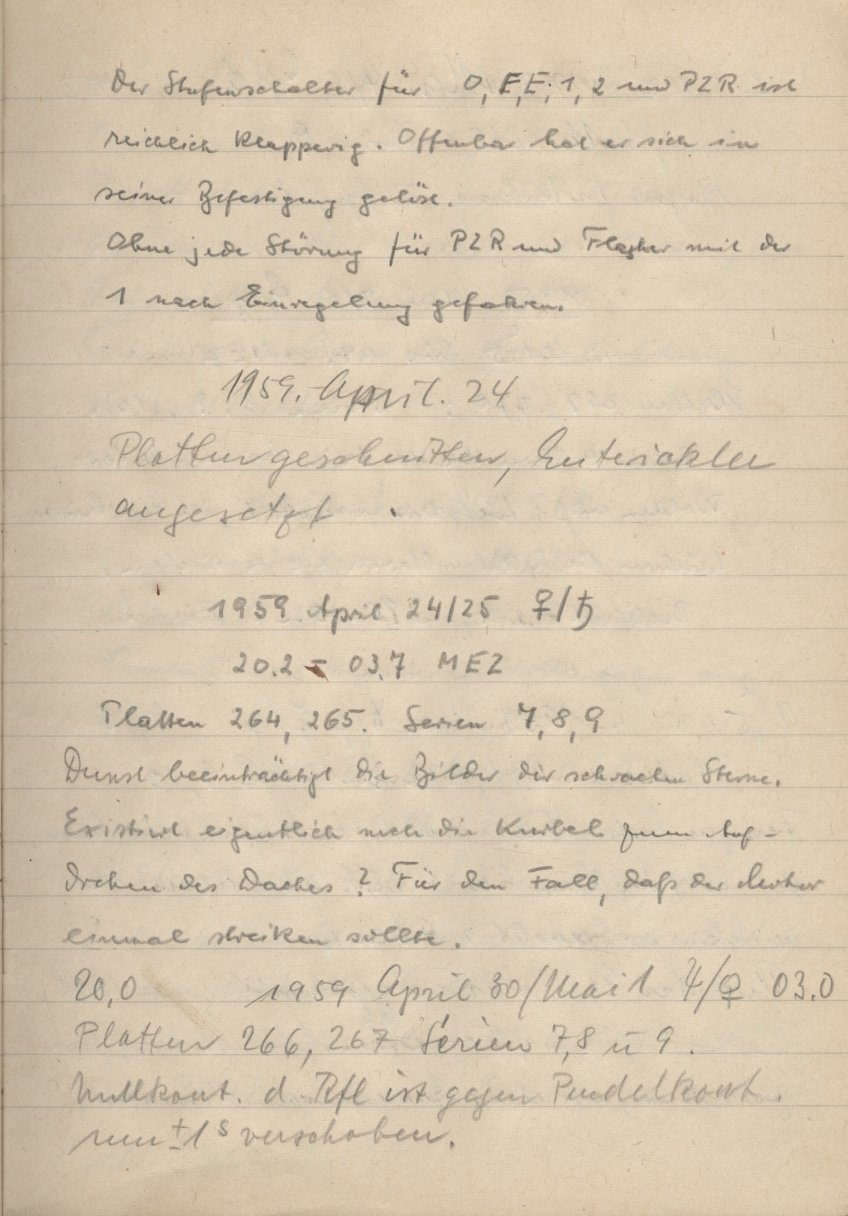 Der Stufenschalter für 0, F, E, 1, 2 und PZR ist
reichlich klapperig. Offenbar hat er sich in
seiner Befestigung gelöst.
Ohne jede Störung für PZR und Flasher mit der
1 nach Einregelung gefahren.
1959. April. 24
Platten geschnitten, Entwickler
angesetzt.
1959 April 24/25 ♀/♄
20.2 – 03.7 MEZ
Platten 264, 265. Serien 7, 8, 9
Dunst beeinträchtigt die Bilder der schwachen Sterne.
Existiert eigentlich noch die Kurbel zum Auf-
drehen des Daches? Für den Fall, daß der Motor
einmal streiken sollte.
20,0 1959 April 30/Mai 1 ♃/♀ 03.0
Platten 266, 267 Serien 7, 8 u 9.
Nullkont. d. Rfl ist gegen Pendelkont.
um ± 1 s verschoben.